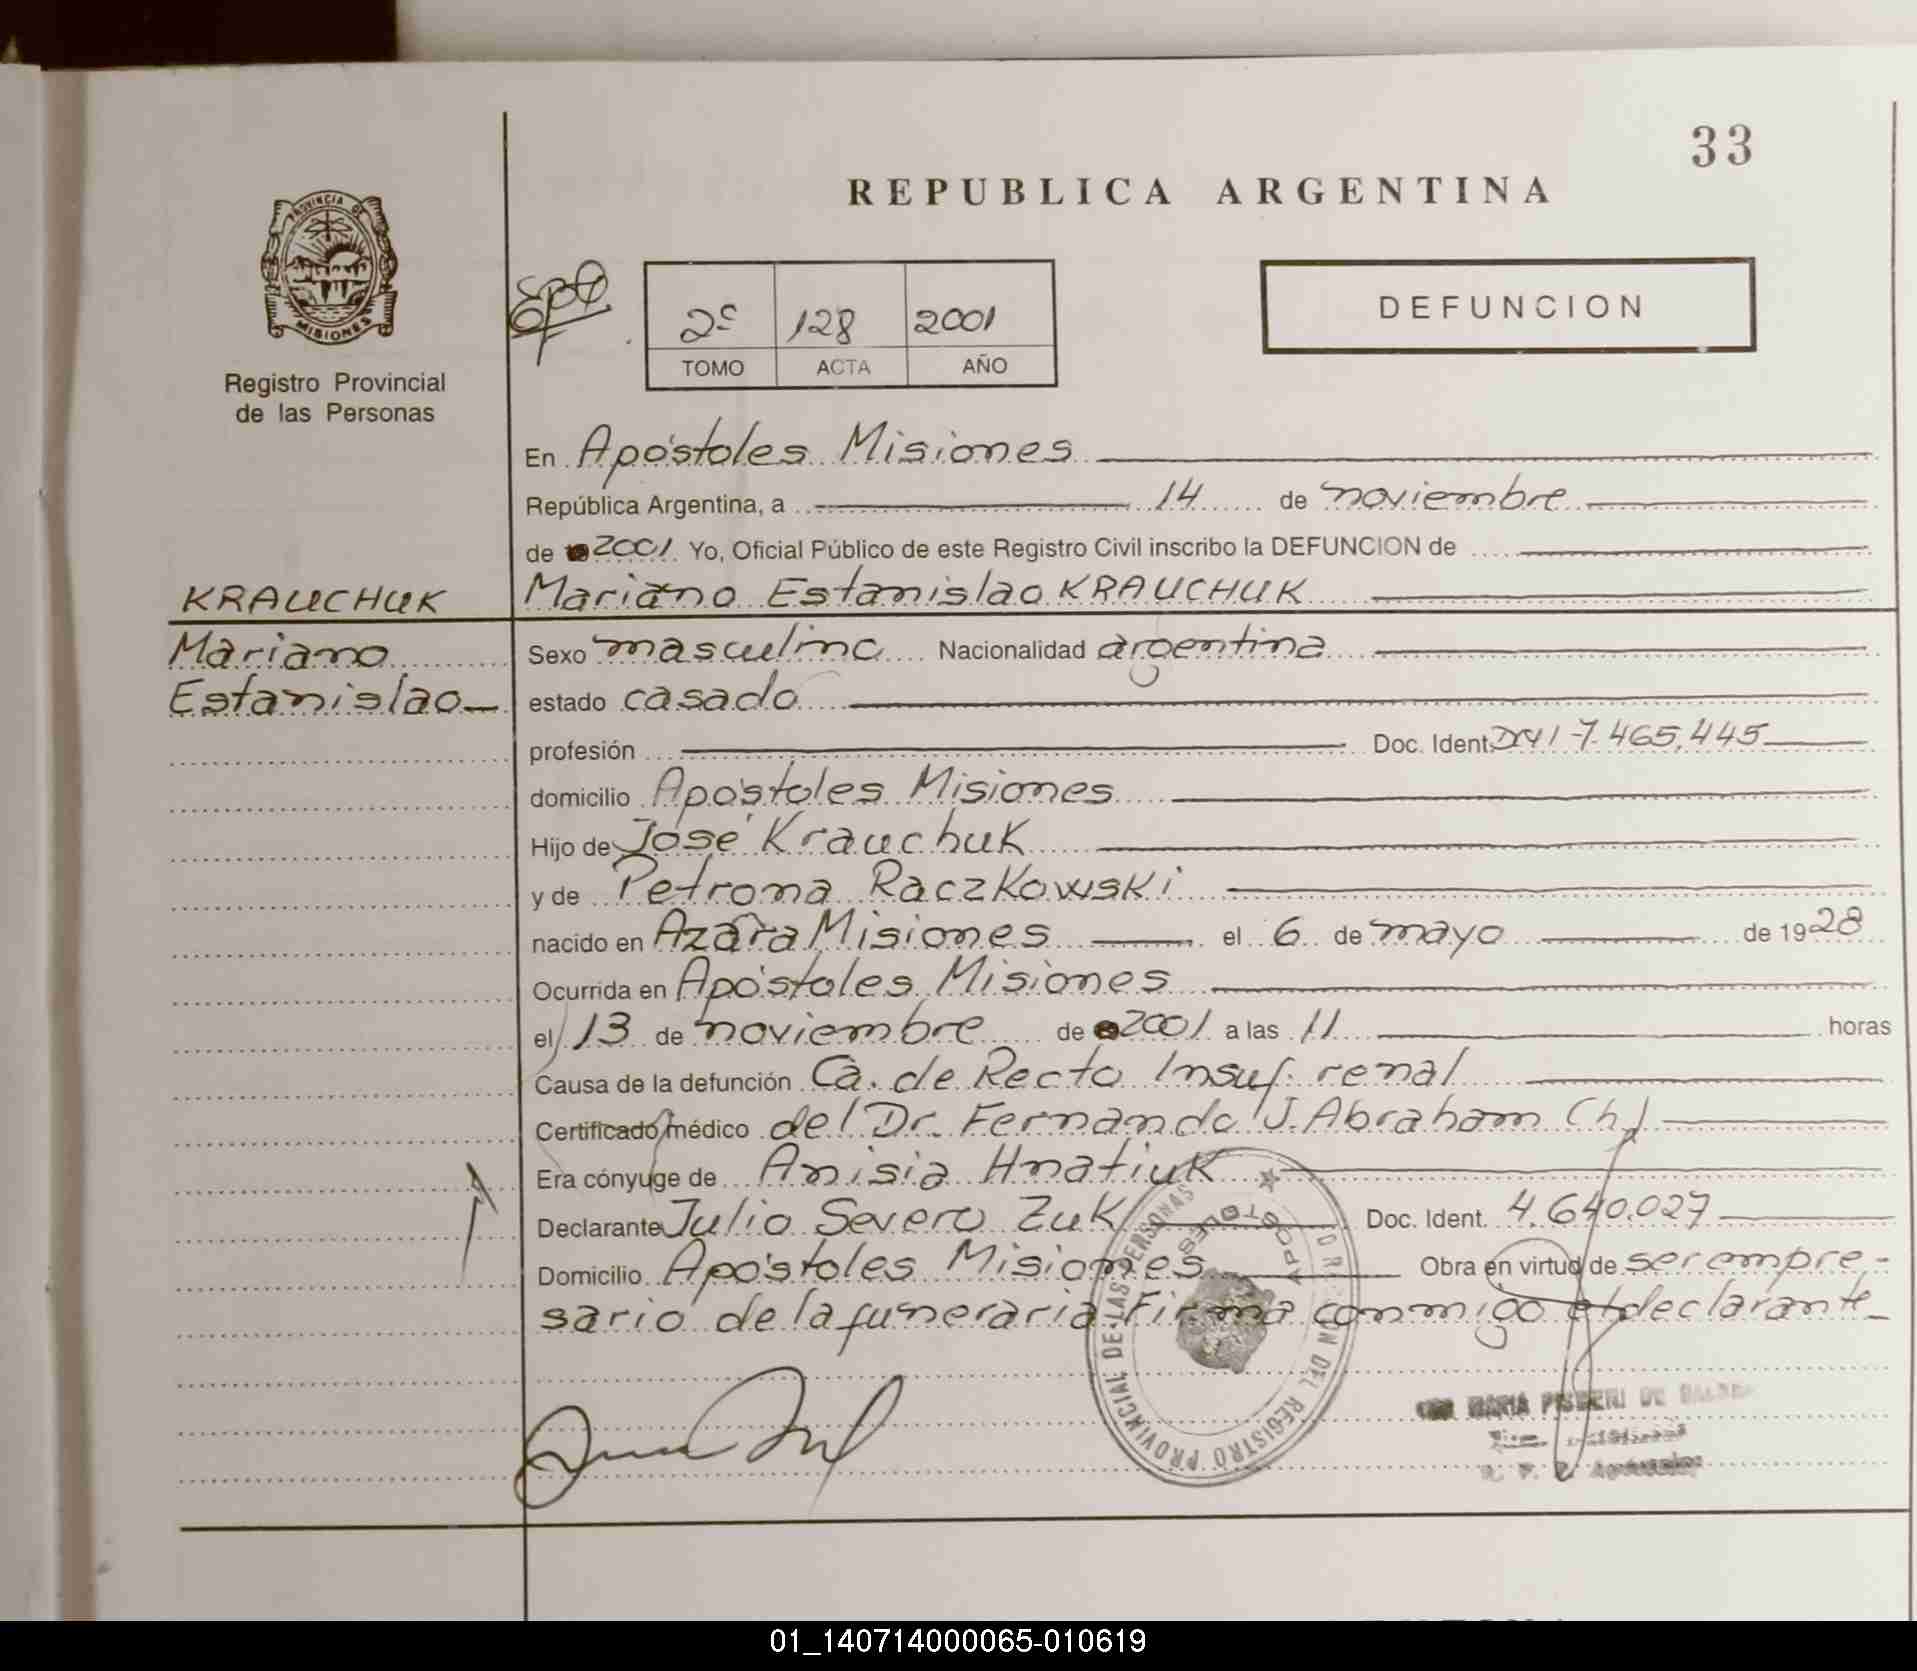 33
REPUBLICA ARGENTINA
PROVINCIA DE
MISIONES
Registro Provincial
de las Personas
2º 128 2001
TOMO ACTA AÑO
DEFUNCION
En Apóstoles Misiones
República Argentina, a 14 de noviembre
de 2001 Yo, Oficial Público de este Registro Civil inscribo la DEFUNCION de
KRAUCHUK
Mariano Estanislao KRAUCHUK
Mariano
Estanislao
Sexo masculino Nacionalidad argentina
estado casado
profesión Doc. Ident. DNI 7.465.445
domicilio Apóstoles Misiones
Hijo de José Krauchuk
y de Petrona Raczkowski
nacido en Azara Misiones el 6 de mayo de 1928
Ocurrida en Apóstoles Misiones
el 13 de noviembre de 2001 a las 11 horas
Causa de la defunción Ca. de Recto Insuf. renal
Certificado médico del Dr. Fernando J. Abraham (h)
Era cónyuge de Anisia Hnatiuk
Declarante Julio Severo Zuk Doc. Ident. 4.640.027
Domicilio Apóstoles Misiones Obra en virtud de ser empre-
sario de la funeraria Firma conmigo el declarante
REGISTRO PROVINCIAL DE LAS PERSONAS
APOSTOLES
MARIA
01_140714000065-010619